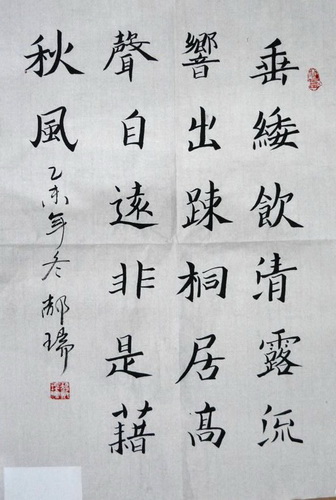 垂緌飲清露流
響出踈桐居高
聲自遠非是藉
秋風
乙未年冬郝瑞